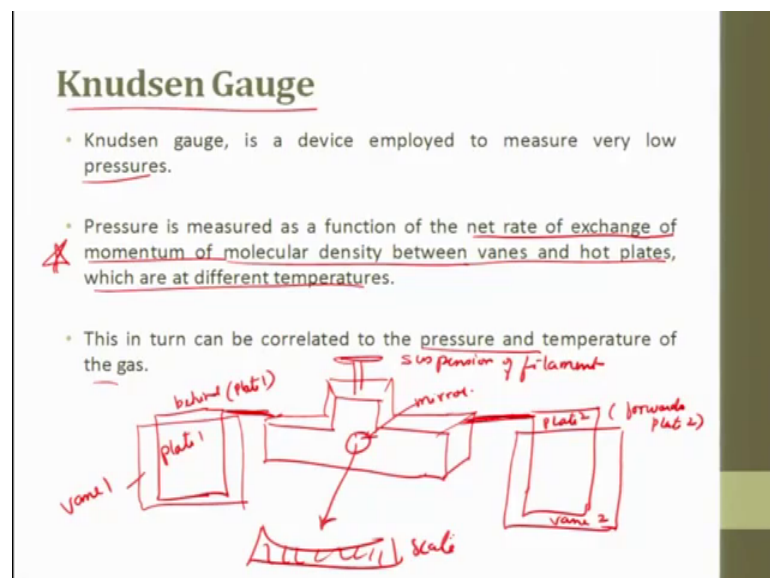 Knudsen Gauge
• Knudsen gauge, is a device employed to measure very low
pressures.
• Pressure is measured as a function of the net rate of exchange of
momentum of molecular density between vanes and hot plates,
which are at different temperatures.
• This in turn can be correlated to the pressure and temperature of
the gas.
suspension of filament
behind (Plate 1)
mirror.
plate 1
plate 2
(forwards
plate 2)
vane 1
vane 2
scale